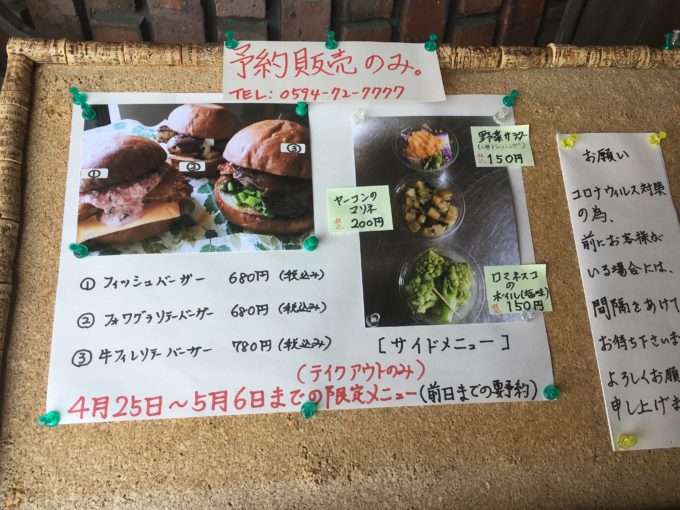 予約販売のみ。
TEL: 0594-72-7777
①
②
③
① フィッシュバーガー 680円 (税込み)
② フォワグラソテーバーガー 680円 (税込み)
③ 牛フィレソテーバーガー 780円 (税込み)
野菜サラダー
(人参ドレッシング)
税込 150円
ヤーコンの
マリネ
税込 200円
ロマネスコ
の
ボイル(塩味)
税込 150円
[サイドメニュー]
(テイクアウトのみ)
4月25日〜5月6日までの限定メニュー(前日までの要予約)
お願い
コロナウィルス対策
の為、
前にお客様が
いる場合には、
間隔をあけて
お待ち下さいま
よろしくお願
申し上げま